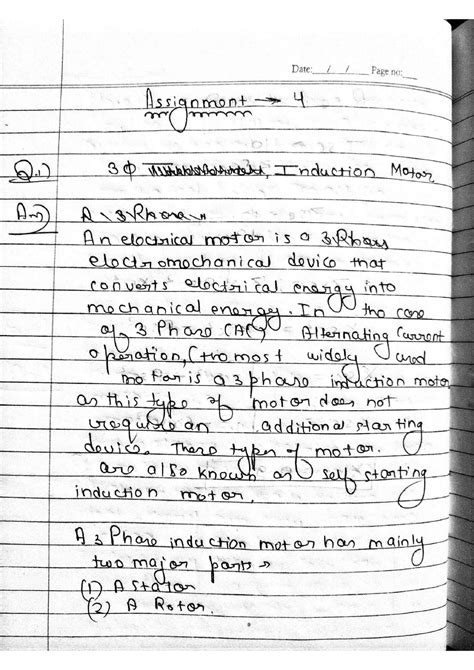 Date: / / Page no:
Assignment → 4
Q.1) 3Φ Induction Motor
Ans) A 3 Phase
An electrical motor is a 3 Phase
electromechanical device that
converts electrical energy into
mechanical energy. In the case
of 3 Phase (AC) Alternating Current
operation, (the most widely used
motor is a 3 phase induction motor
as this type of motor does not
require an additional starting
device. These types of motor.
are also known as self starting
induction motor.
A 3 Phase induction motor has mainly
two major parts →
(1) A Stator
(2) A Rotor.